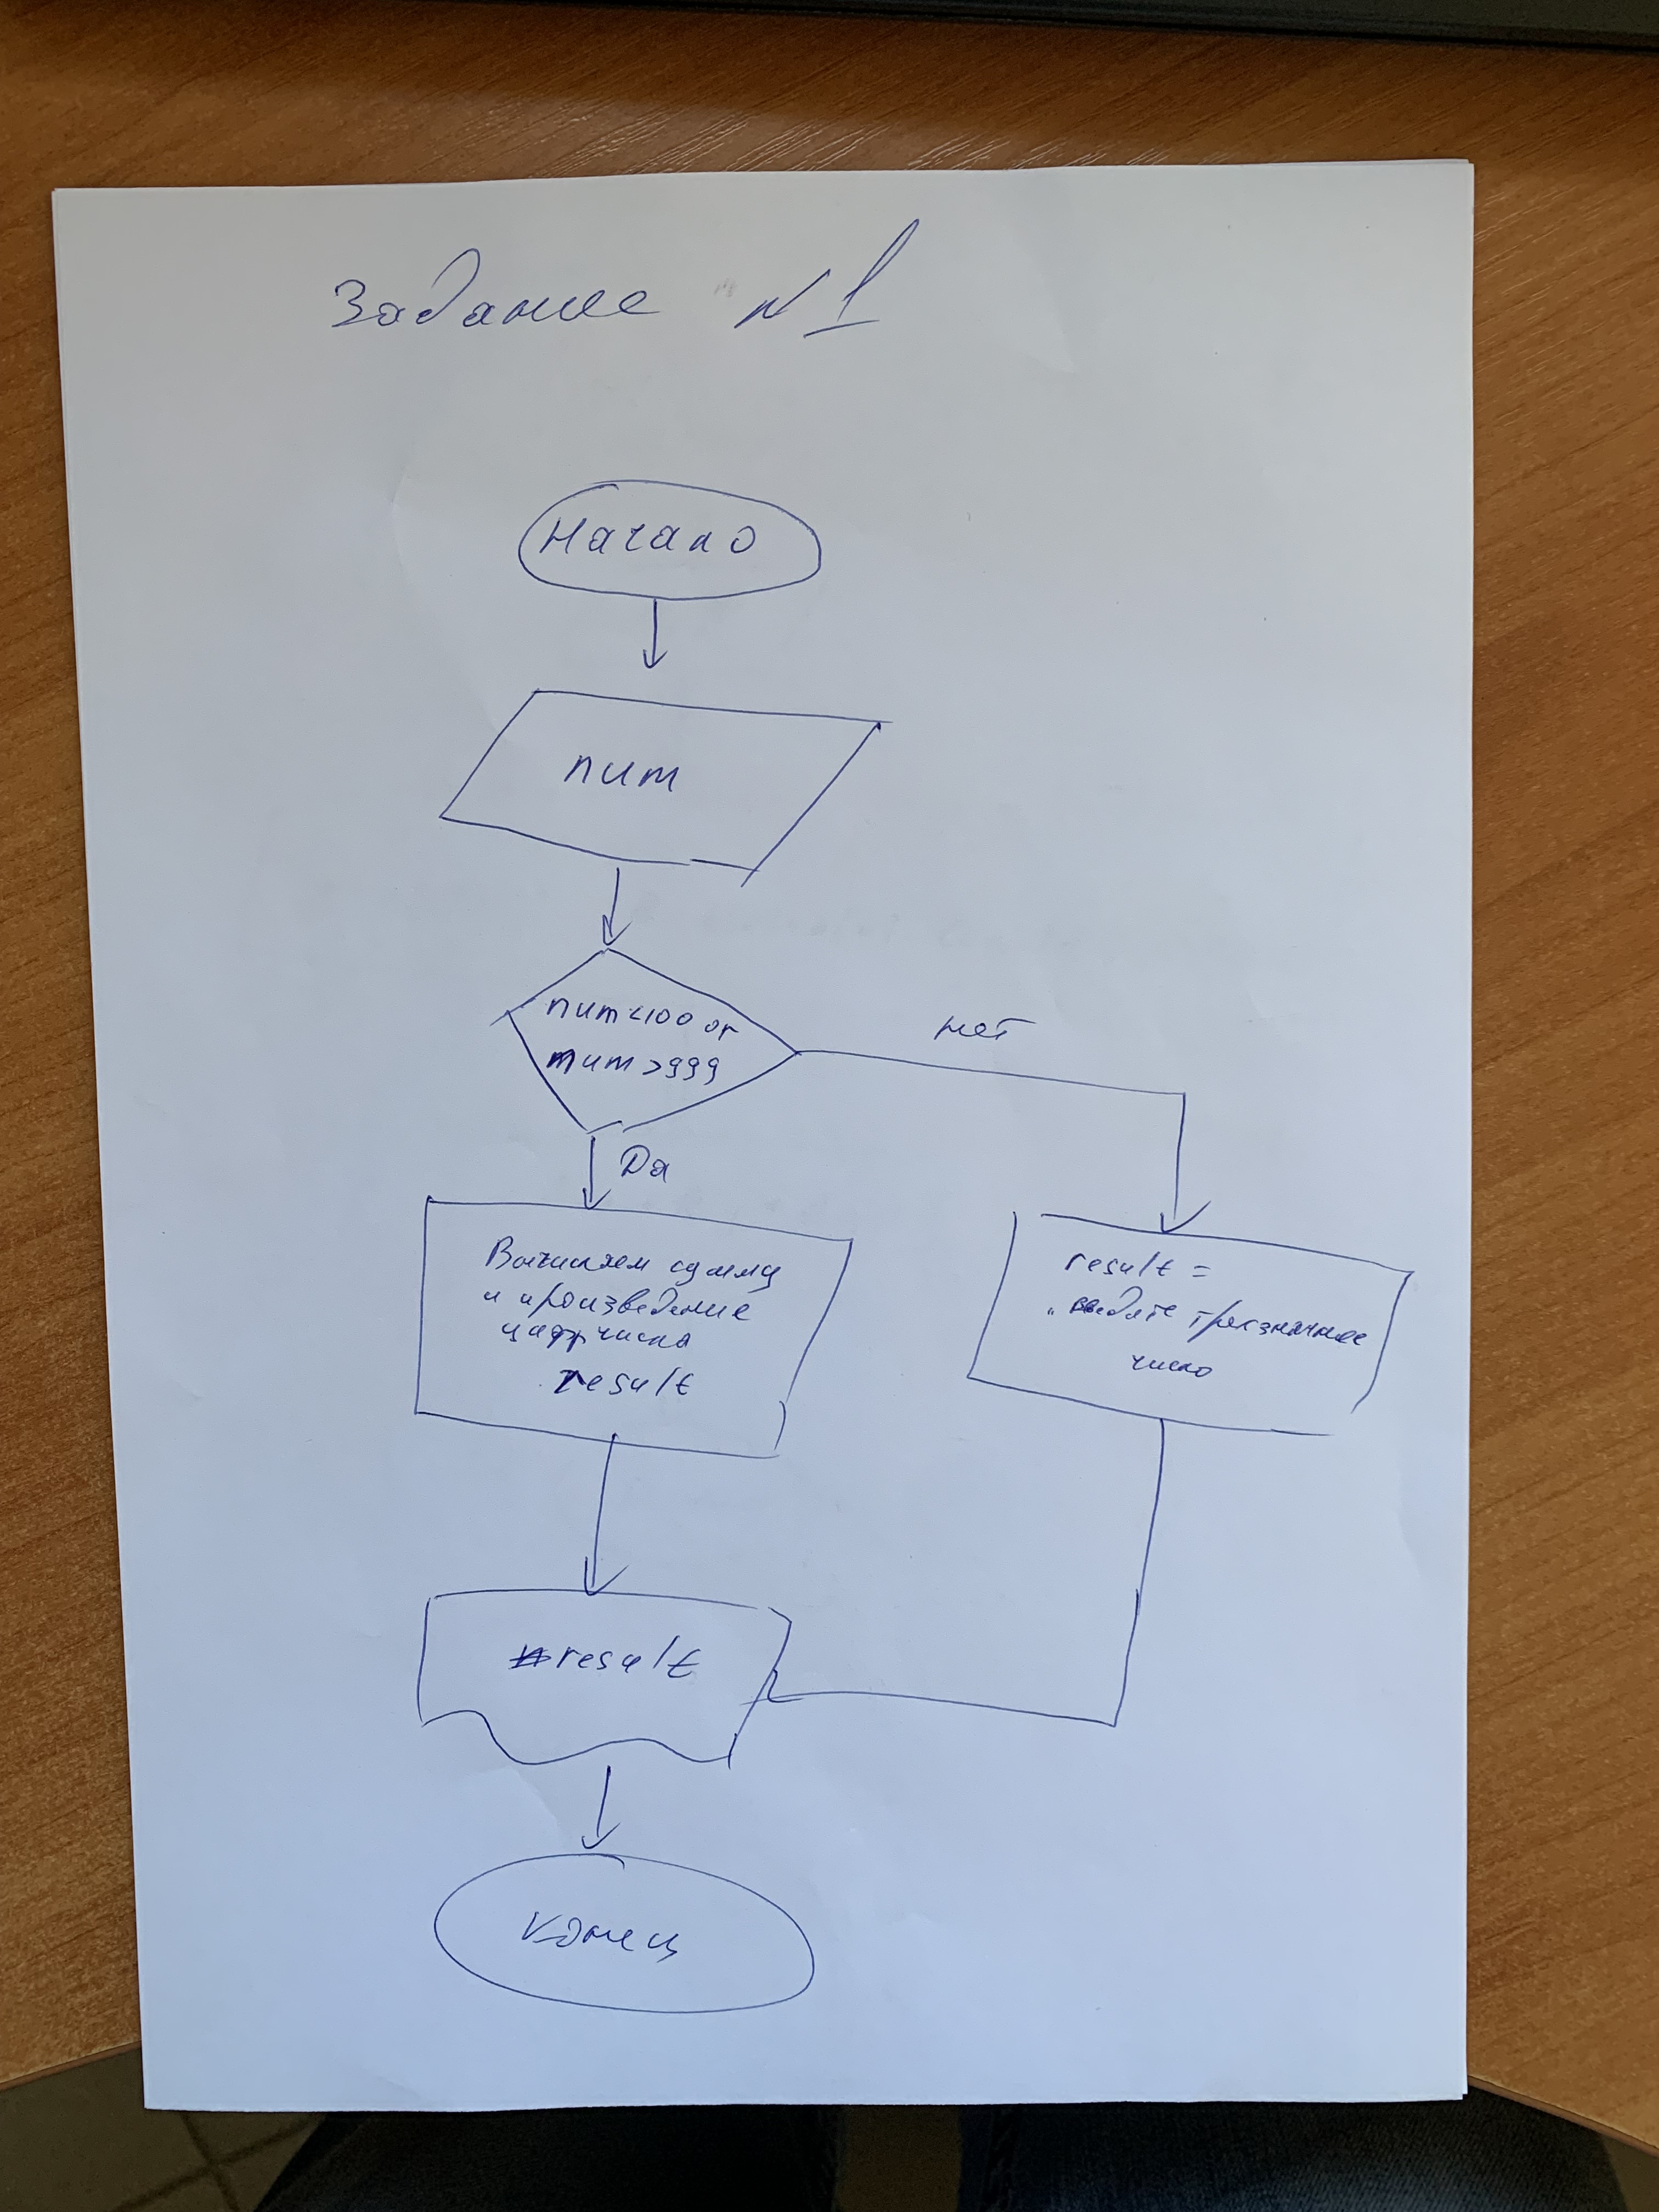 Задание №1
Начало
num
num<100 or
num>999
нет
Да
Вычисляем сумму
и произведение
цифр числа
result
result =
„введите трехзначное
число
result
конец